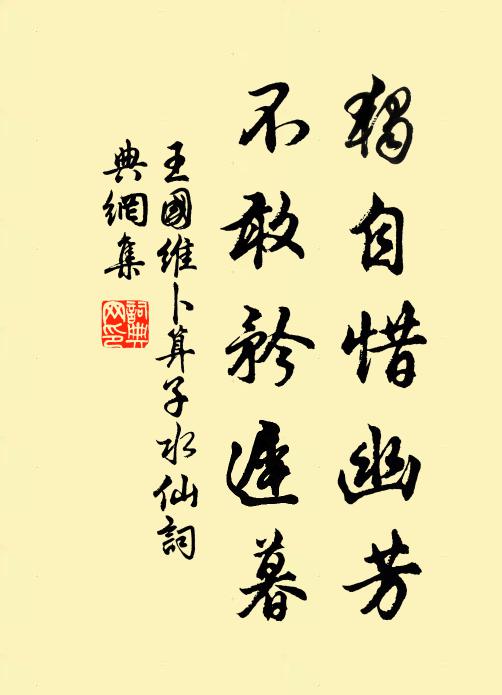 獨自惜幽芳
不敢矜遲暮
王國維卜算子水仙詞
典網集
詞典網印